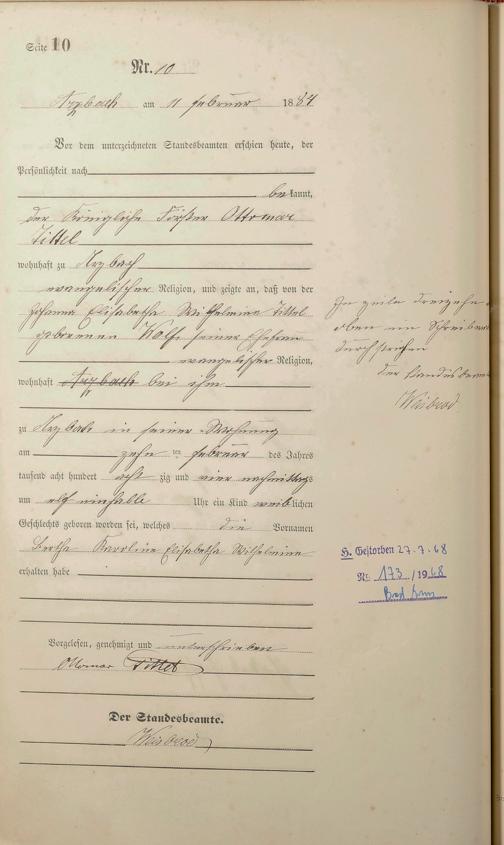 Seite 10
Nr. 10
Arzbach am 11 Februar 1884
Vor dem unterzeichneten Standesbeamten erschien heute, der
Persönlichkeit nach
bekannt,
der Königliche Förster Ottomar
Tittel
wohnhaft zu Arzbach
evangelischer Religion, und zeigte an, daß von der
Johanna Elisabetha Wilhelmine Tittel
geborenen Wolf seiner Ehefrau
evangelischer Religion,
wohnhaft Arzbach bei ihm
zu Arzbach in seiner Wohnung
am zehn ten Februar des Jahres
tausend acht hundert acht zig und vier nachmittags
um elf einhalb Uhr ein Kind weiblichen
Geschlechts geboren worden sei, welches die Vornamen
Bertha Karoline Elisabetha Wilhelmine
erhalten habe
Vorgelesen, genehmigt und unterschrieben
Ottomar Tittel
Der Standesbeamte.
Weisbrod
In Zeile dreizehn
oben ein
durchstrichen
Der Standesbeam
Weisbrod
H. Gestorben 27.7.68
Nr. 173 /1968
Bad Ems